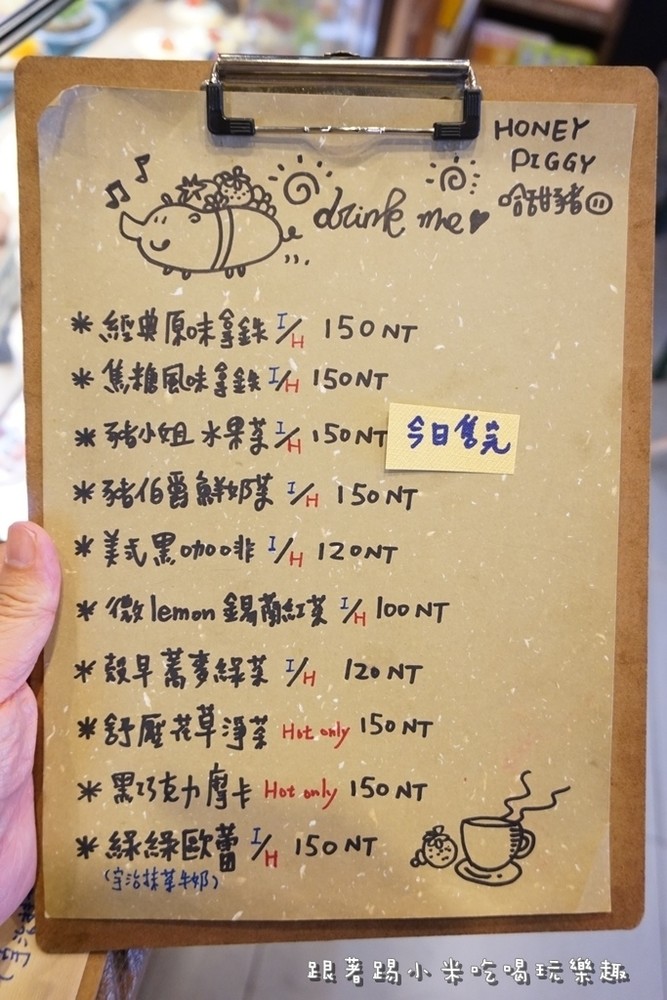 HONEY
PIGGY
哈甜豬
drink me
* 經典原味拿鉄 I/H 150NT
* 焦糖風味拿鉄 I/H 150NT
* 豬小姐水果茶 I/H 150NT 今日售完
* 豬伯爵鮮奶茶 I/H 150NT
* 美式黑咖啡 I/H 120NT
* 微lemon錫蘭紅茶 I/H 100NT
* 穀早蕎麥綠茶 I/H 120NT
* 舒壓花草淨茶 Hot only 150NT
* 黑巧克力摩卡 Hot only 150NT
* 綠綠歐蕾 I/H 150NT
(宇治抹茶牛奶)
跟著踢小米吃喝玩樂趣